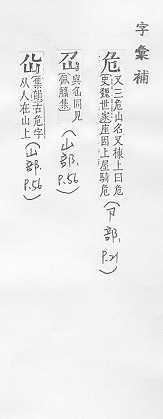 字彙補
危 又三危山名又棟上曰危
史魏世家座因上屋騎危
(卩部, P.21)
與名同見
佩觿集
(山部. P.56)
集韻古危字
从人在山上
(山部. P.56)